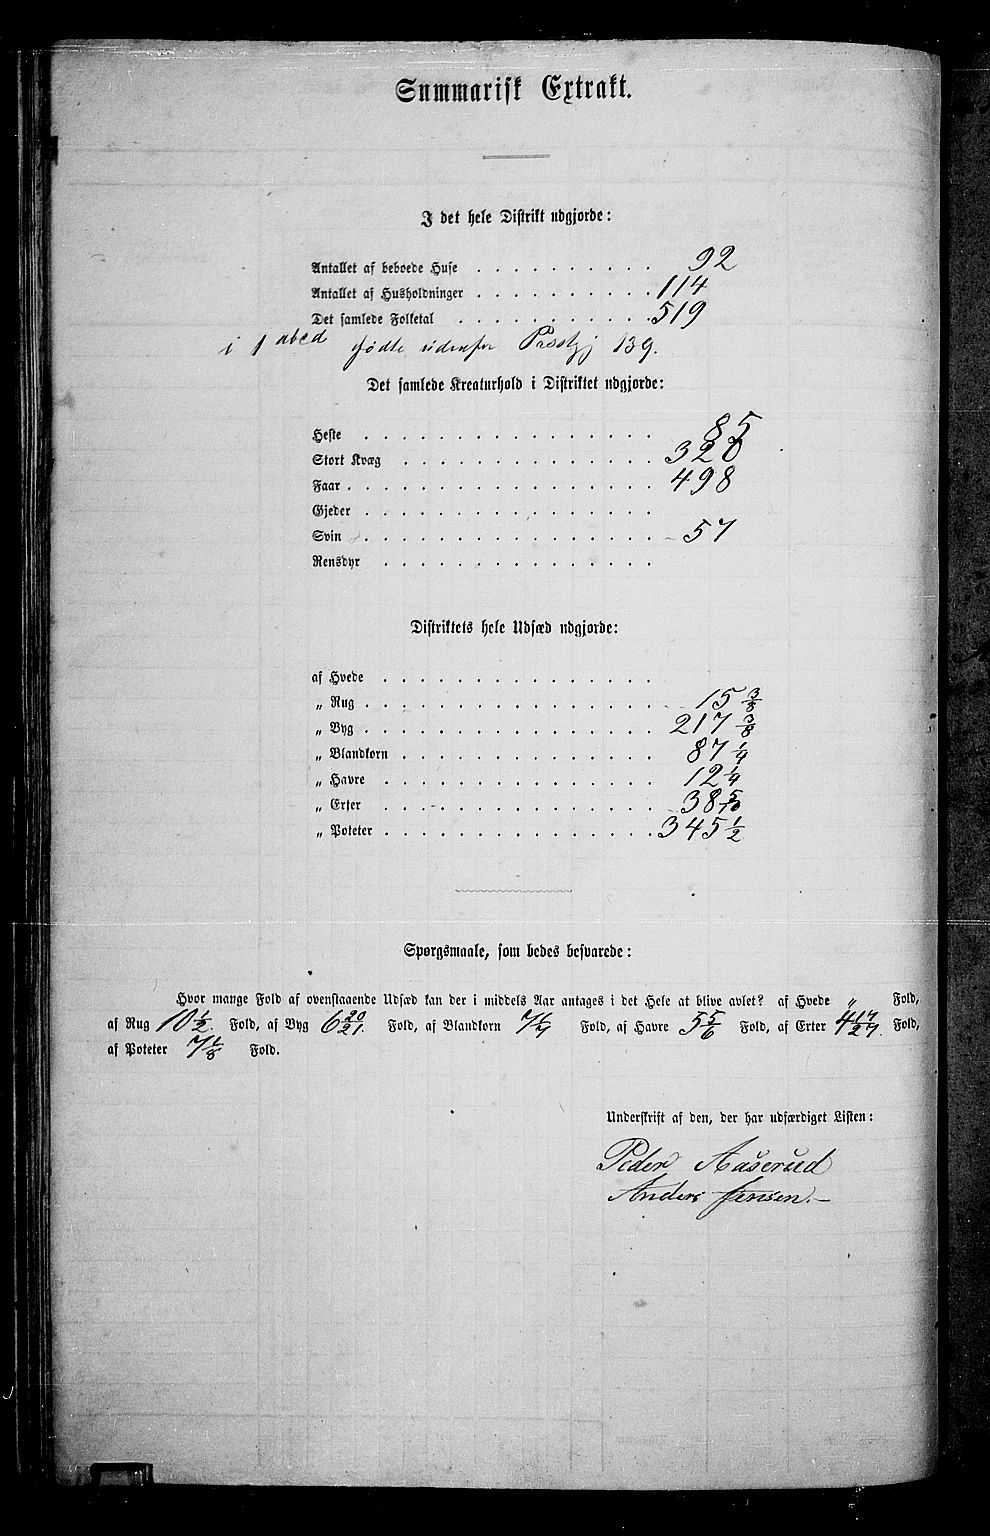 Summarisk Extrakt.
I det hele Distrikt udgjorde:
Antallet af beboede Huse . . . . . . . . . . 92
Antallet af Husholdninger . . . . . . . . . . 114
Det samlede Folketal . . . . . . . . . . . 519
i 1 abcd fødte udenfor Præstgj 139.
Det samlede Kreaturhold i Distriktet udgjorde:
Heste . . . . . . . . . . . . . . . . 85
Stort Kvæg . . . . . . . . . . . . . . 320
Faar . . . . . . . . . . . . . . . . . 498
Gjeder . . . . . . . . . . . . . . . .
Svin . . . . . . . . . . . . . . . . 57
Rensdyr . . . . . . . . . . . . . . .
Distriktets hele Udsæd udgjorde:
af Hvede . . . . . . . . . . . . . . .
„ Rug . . . . . . . . . . . . . . . . 15 3/8
„ Byg . . . . . . . . . . . . . . . . 217 3/8
„ Blandkorn . . . . . . . . . . . . . . 87 1/4
„ Havre . . . . . . . . . . . . . . . 12 1/4
„ Erter . . . . . . . . . . . . . . . 38 5/10
„ Poteter . . . . . . . . . . . . . . . 345 1/2
Spørgsmaale, som bedes besvarede:
Hvor mange Fold af ovenstaaende Udsæd kan der i middels Aar antages i det Hele at blive avlet? af Hvede „ Fold,
af Rug 10 1/2. Fold, af Byg 6 20/21. Fold, af Blandkorn Fold, af Havre 5 5/6 Fold, af Erter 4 17/27. Fold,
af Poteter 7 1/8 Fold.
Underskrift af den, der har udfærdiget Listen:
Peder Aaserud
Anders Jensen.